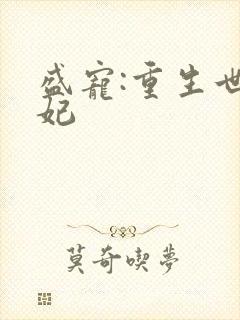 盛寵:重生世
妃
莫奇喫夢